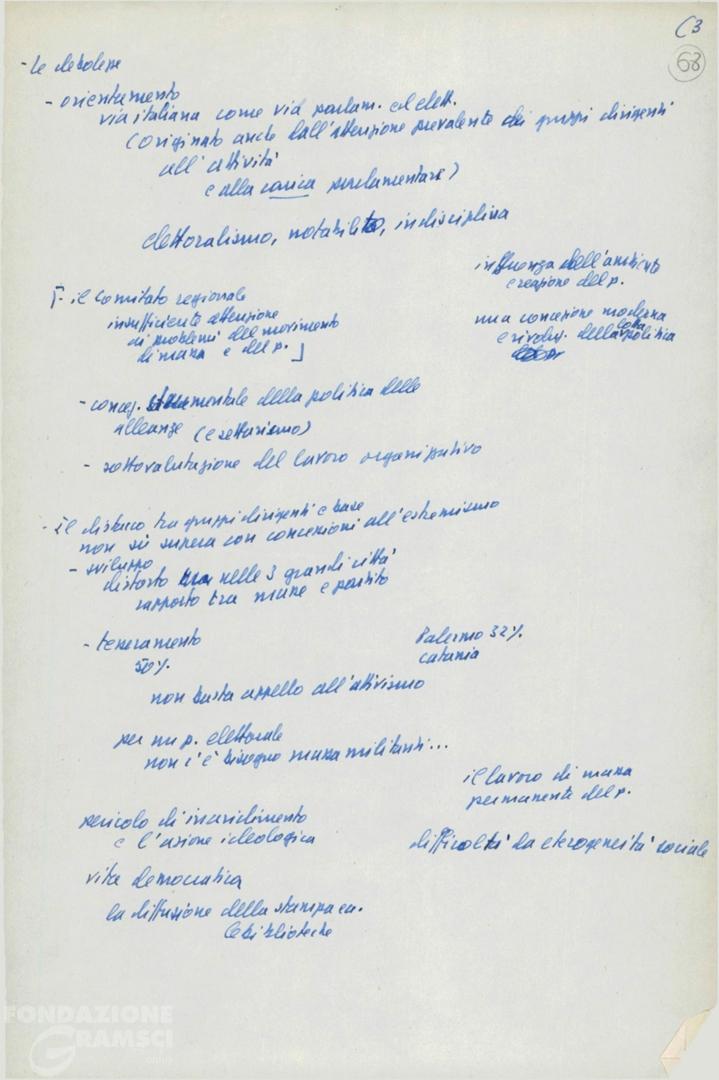 C3
68
- Le debolezze
- orientamento
via italiana come via parlam. ed elett.
(originato anche dall'attenzione prevalente dei gruppi dirigenti
all'attività
e alla carica parlamentare)
elettoralismo, notabilato, indisciplina
influenza dell'ambiente
e reazione del p.
[- il Comitato regionale
insufficiente attenzione
ai problemi del movimento
di massa e del p. ]
una concezione moderna
e rivoluz. della lotta politica
- concez. strumentale della politica delle
alleanze (e settarismo)
- sottovalutazione del lavoro organizzativo
- il distacco tra gruppi dirigenti e base
non si supera con concessioni all'estremismo
- sviluppo
distorto nelle 3 grandi città
rapporto tra masse e partito
- tesseramento
50%
Palermo 32%
Catania
non basta appello all'attivismo
per un p. elettorale
non c'è bisogno massa militanti...
il lavoro di massa
permanente del p.
pericolo di inaridimento
e l'azione ideologica
difficoltà da eterogeneità sociale
vita democratica
la diffusione della stampa ecc.
le biblioteche
FONDAZIONE
GRAMSCI